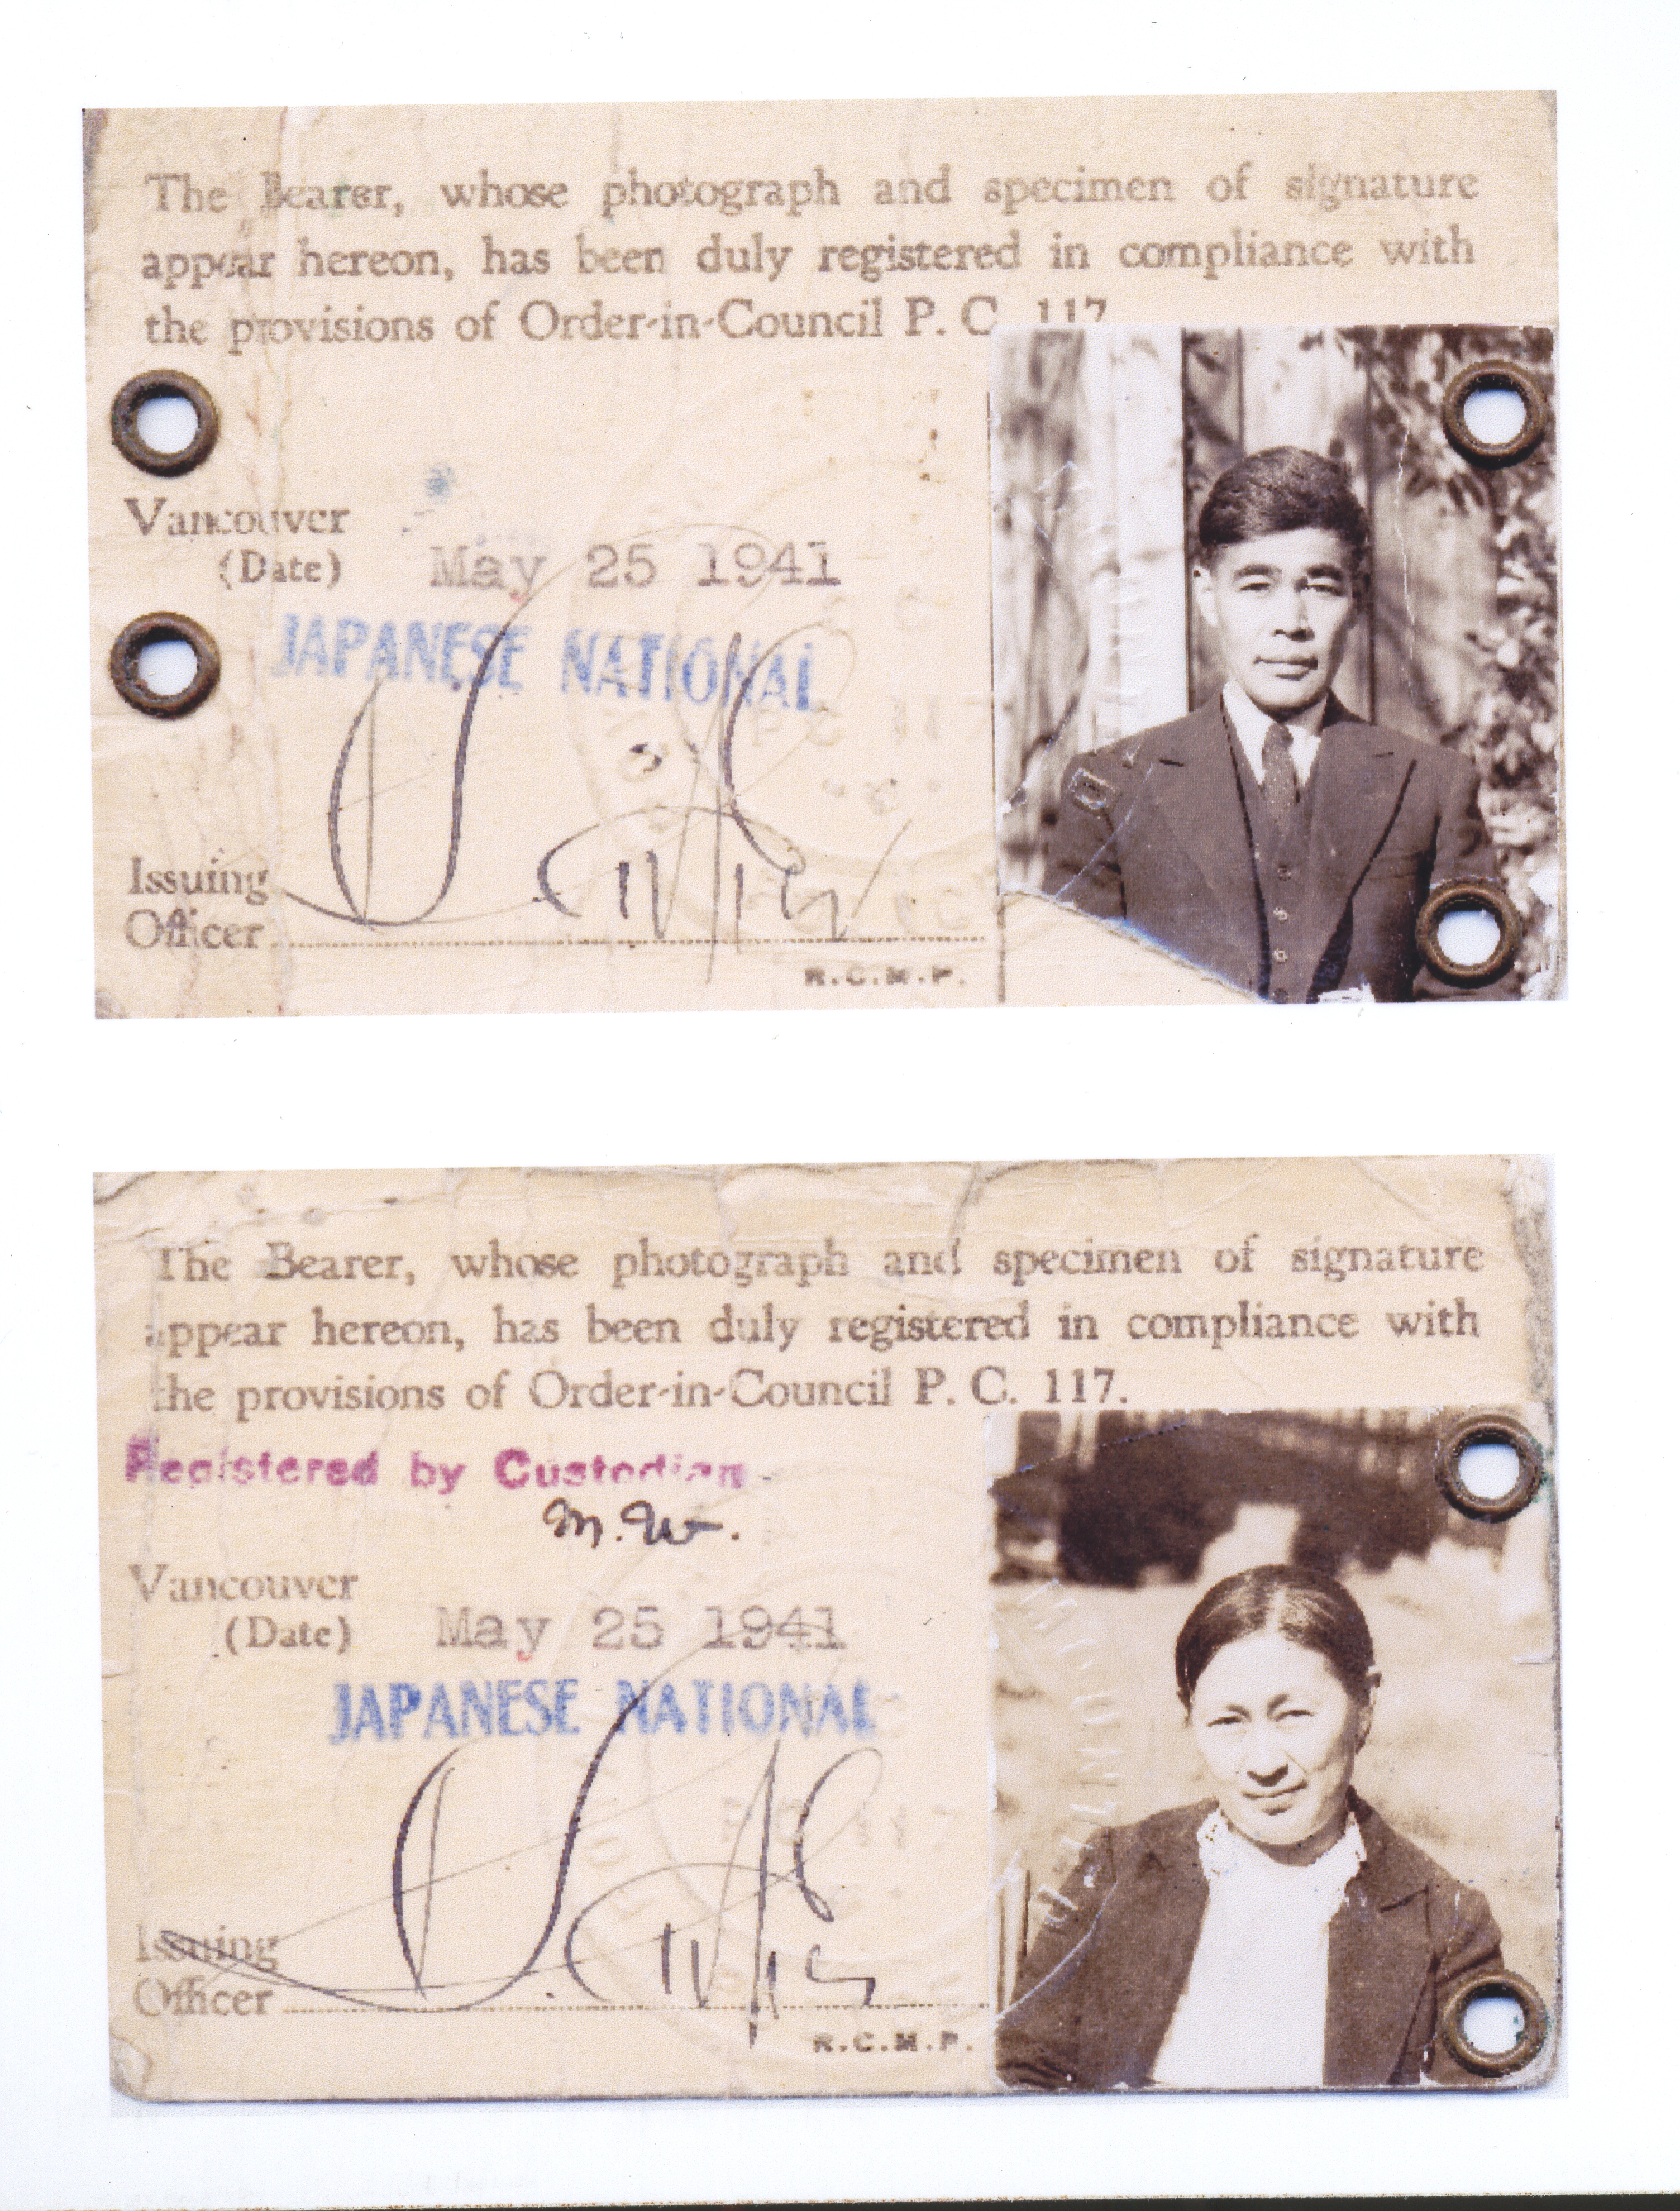 The Bearer, whose photograph and specimen of signature
appear hereon, has been duly registered in compliance with
the provisions of Order-in-Council P. C. 117
Vancouver
(Date) May 25 1941
JAPANESE NATIONAL
Issuing
Officer
R.C.M.P.
The Bearer, whose photograph and specimen of signature
appear hereon, has been duly registered in compliance with
the provisions of Order-in-Council P. C. 117.
Registered by Custodian
M.W.
Vancouver
(Date) May 25 1941
JAPANESE NATIONAL
MOUNTED
Issuing
Officer
R.C.M.P.